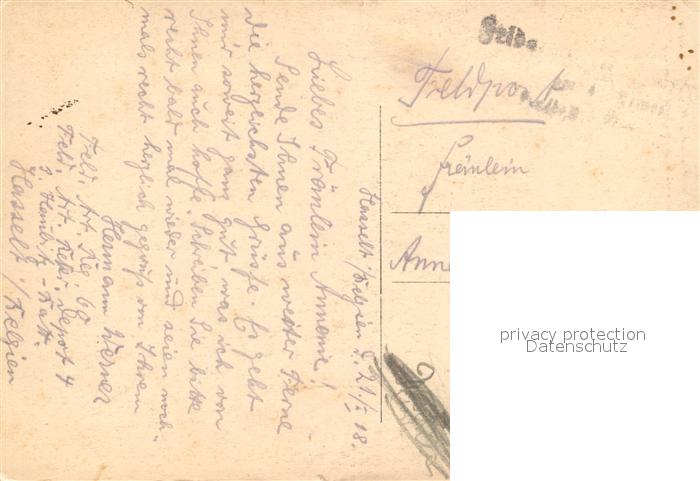 Hasselt / Belgien d. 21/I 18.
Liebes Fräulein Annemi!
Sende Ihnen aus weiter Ferne
die herzlichsten Grüße. Es geht
mir soweit ganz gut was ich von
Ihnen auch hoffe. Schreiben Sie bitte
recht bald mal wieder und seien noch-
mals recht herzlich gegrüßt von Ihrem
Hermann Werner
Feld. Art. Reg 60
Feld. Art. Rekr. Depot 4
Haubitz-Batt.
Hasselt / Belgien
Feldpost
Fräulein
Anne
privacy protection
Datenschutz